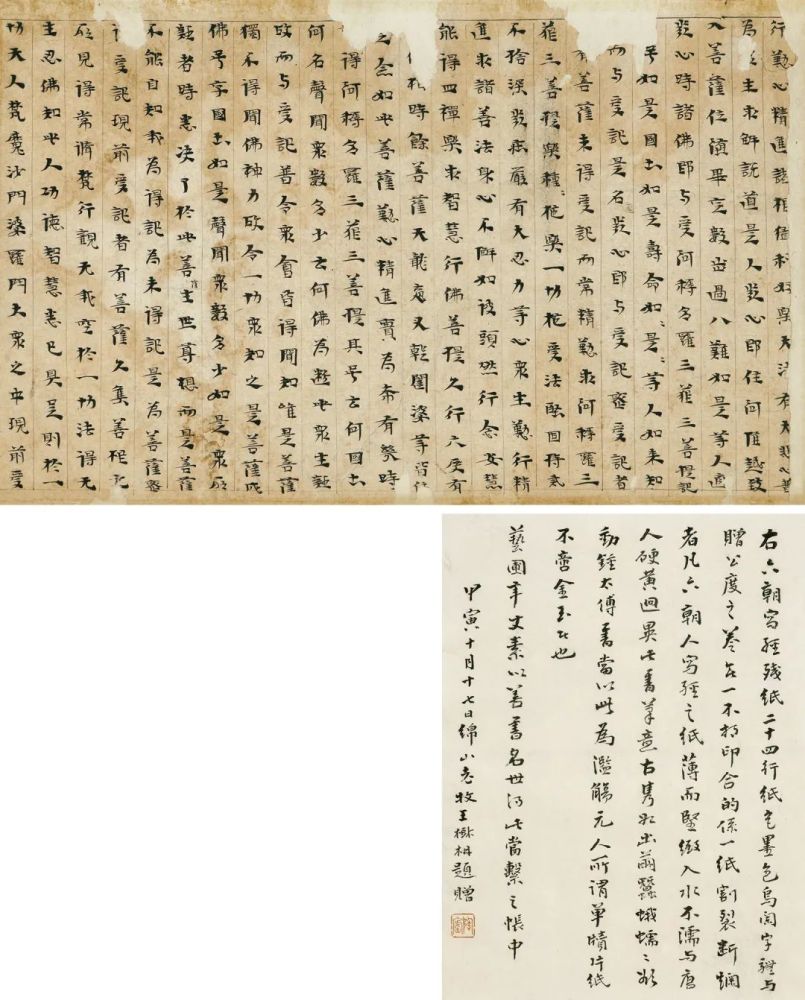 行懃心精進諸根猛利好樂大法有大悲心普
為眾生求解脫道是人發心即住阿惟越致
入菩薩位墮畢定數出過八難如是等人適
發心時諸佛即与受阿耨多羅三藐三菩提記
号如是國土如是壽命如是如是等人如來知
而与受記是名發心即与受記密受記者
有菩薩未得受記而常精懃求阿耨羅三
藐三菩提樂種種施樂一切施受法堅固持戒
不捨深發莊嚴有大忍力等心衆生懃行精
進求諸善法身心不懈如救頭然行念安慧
能得四禪樂求智慧行佛菩提久行六度有
時餘菩薩天龍夜叉乾闥婆等皆作
之念如此菩薩懃心精進實為希有幾時
得阿耨多羅三藐三菩提其号云何國土
何名聲聞衆數多少云何佛為斷此衆生疑
故而与受記普令衆會皆得聞知唯是菩薩
獨不得聞佛神力故令一切衆知之是菩薩成
佛号字國土如是聲聞衆數多少如是衆所
疑者時悉決了於此菩薩生世尊想而是菩薩
不能自知我為得記為未得記是為菩薩密
受記現前受記者有菩薩久集善根无
所見得常脩梵行觀无我空於一切法得无
生忍佛知此人功德智慧悉已具足則於一
切天人梵魔沙門婆羅門大衆之中現前受
右六朝寫經殘紙二十四行紙色墨色烏闌字體与
贈公度之卷若一不移印合的係一紙割裂斷爛
者凡六朝人寫經之紙薄而堅緻入水不濡与唐
人硬黃迥異此書筆意古雋如出繭蠶蛾蠕蠕欲
動鍾太傅書當以此為濫觴元人所謂單牘片紙
不啻金玉者也
藝圃年丈素以善書名世得此當繫之帳中
甲寅十月十七日綿山老牧王樹枏題贈